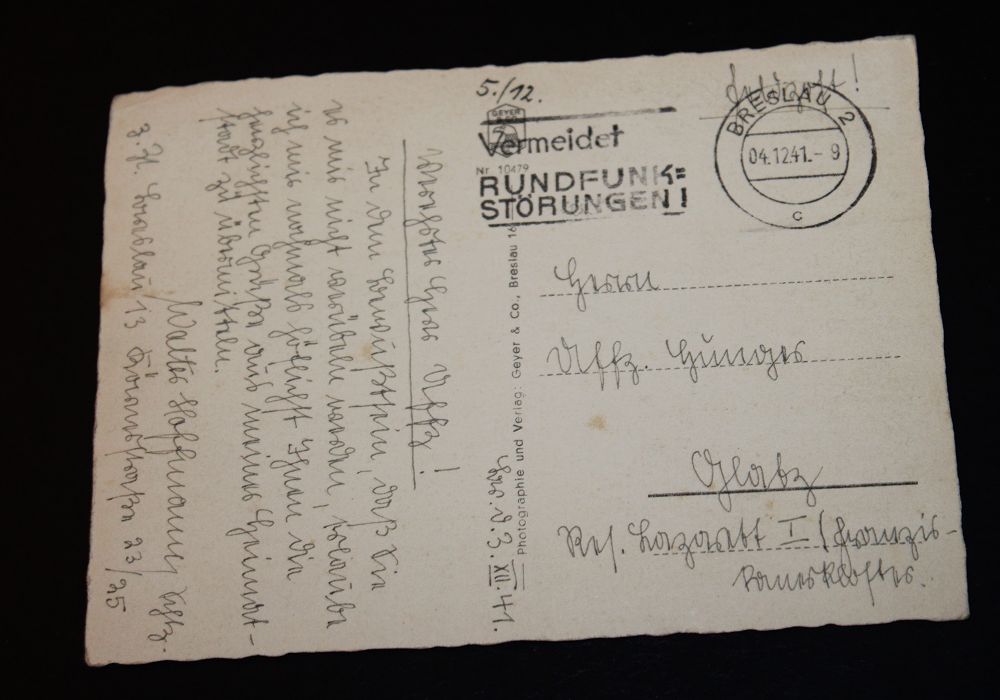 5./12.
Feldpost!
GEYER
Vermeidet
RUNDFUNK=
STÖRUNGEN!
BRESLAU 2
04.12.41.-9
c
Nr. 10479
Photographie und Verlag: Geyer & Co., Breslau 16
Herrn
Uffz.
Glatz
Res. Lazarett I (Franzis-
kanerkloster.
Brs. d. 3. XII. 41.
Werter Herr Uffz!
In dem Bewußtsein, daß Sie
es mir nicht verübeln werden, erlaube
ich mir nochmals höflichst Ihnen die
herzlichsten Grüße aus meiner Heimat-
stadt zu übermitteln.
Walter Hoffmann, Schtz.
z. Zt. Breslau 13 23/25